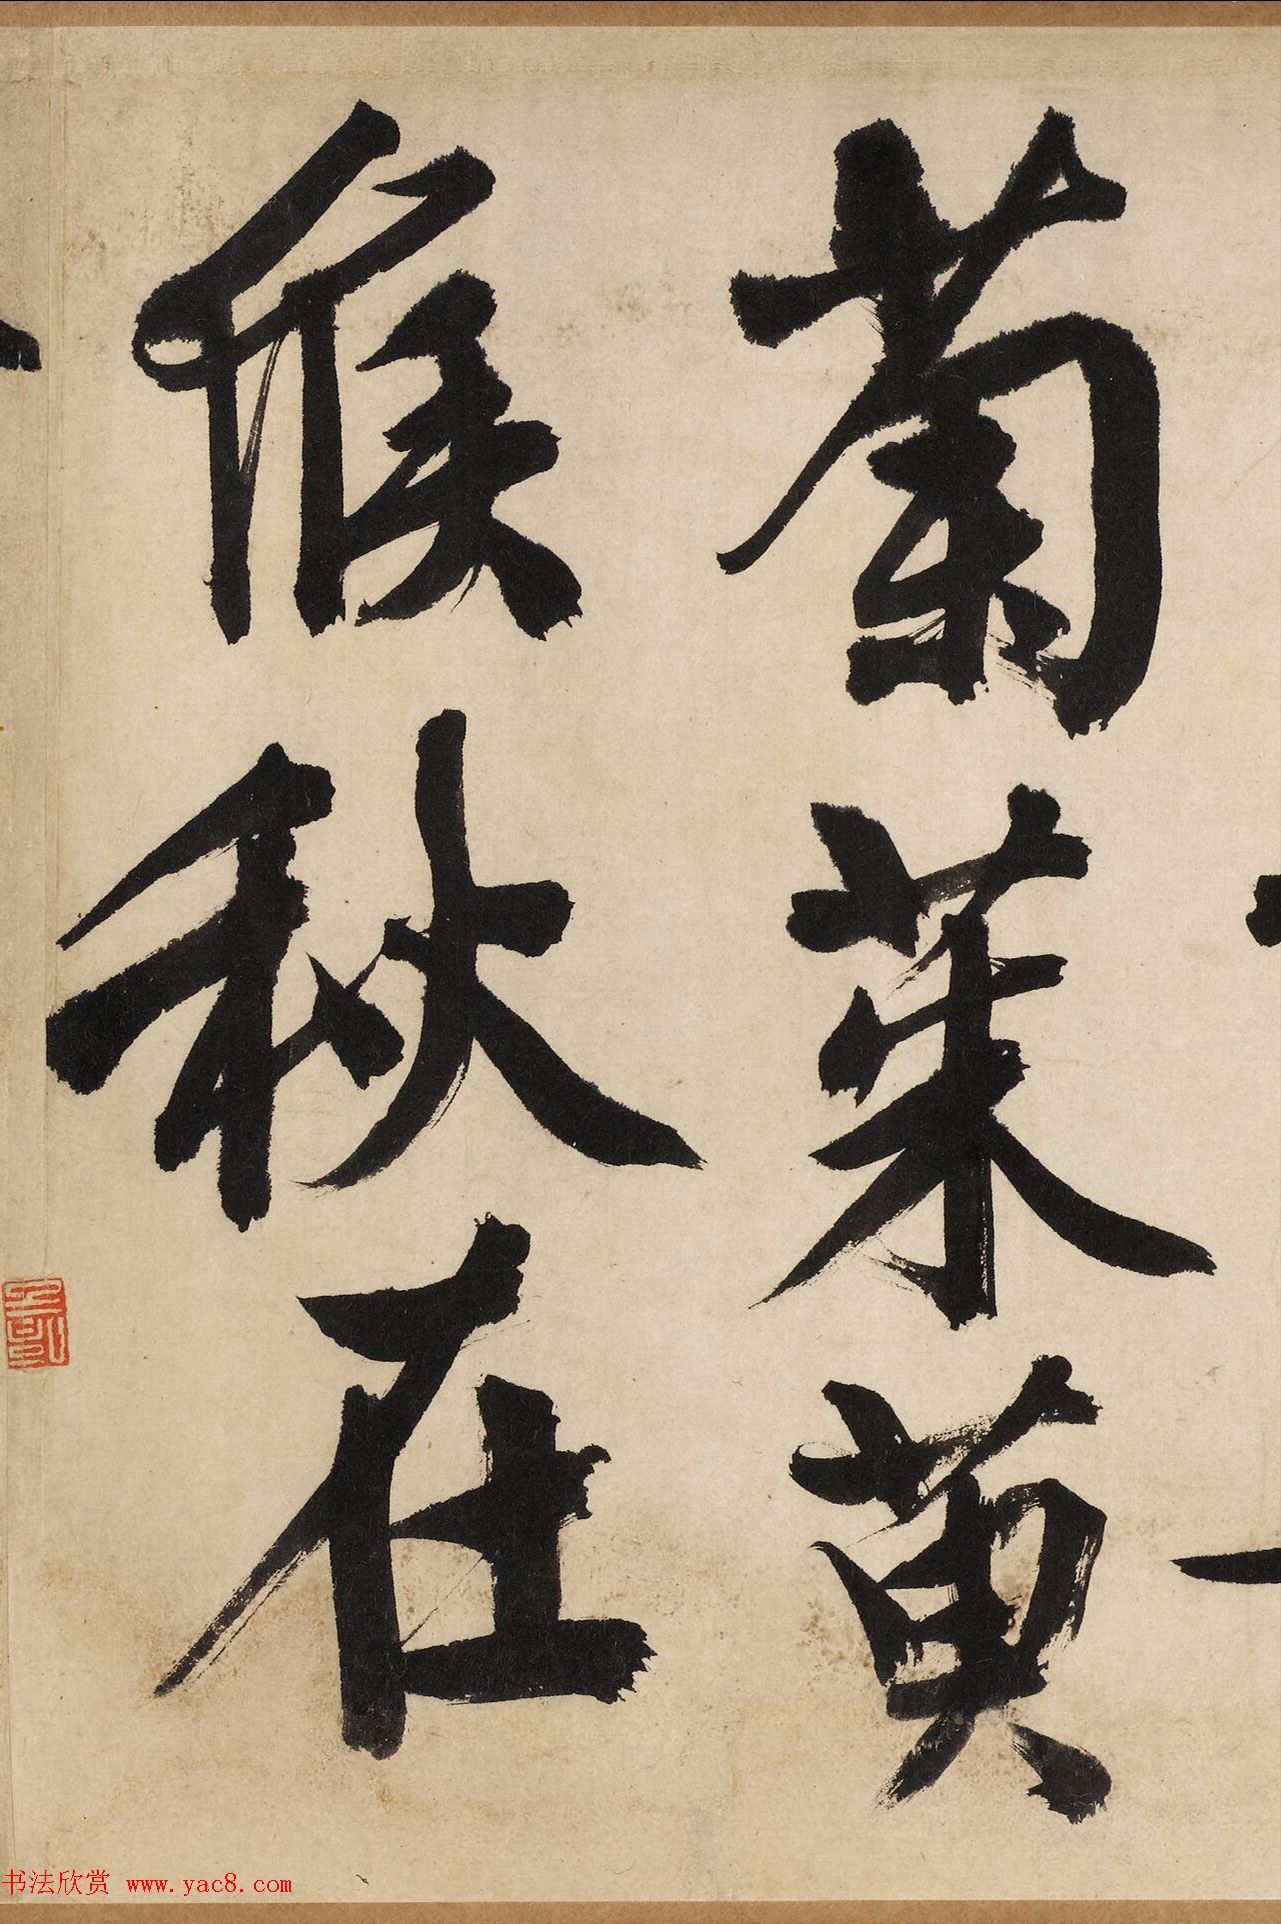 菊茱萸
候秋在
书法欣赏 www.yac8.com